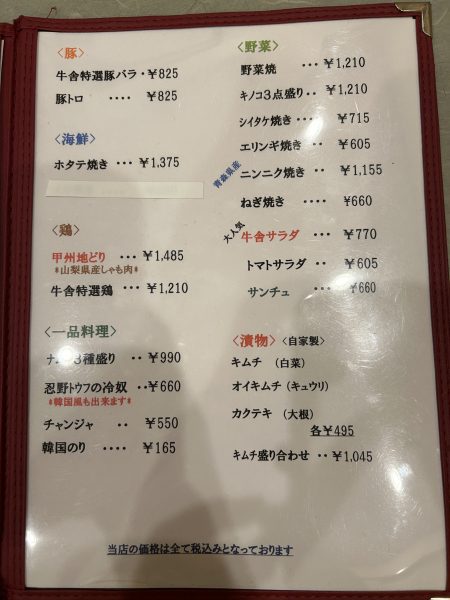 〈豚〉
牛舎特選豚バラ・￥825
豚トロ ････ ￥825
〈海鮮〉
ホタテ焼き ･･･ ￥1,375
〈鶏〉
甲州地どり ･･ ￥1,485
*山梨県産しゃも肉*
牛舎特選鶏 ･･･ ￥1,210
〈一品料理〉
3種盛り ･･ ￥990
忍野トウフの冷奴 ･･￥660
*韓国風も出来ます*
チャンジャ ･･･ ￥550
韓国のり ････ ￥165
〈野菜〉
野菜焼 ･･･ ￥1,210
キノコ3点盛り ･･ ￥1,210
シイタケ焼き ･･･ ￥715
エリンギ焼き ･･･ ￥605
青森県産
ニンニク焼き ･･ ￥1,155
ねぎ焼き ････ ￥660
大人気
牛舎サラダ ･･･ ￥770
トマトサラダ ･･ ￥605
サンチュ ･･･ ￥660
〈漬物〉〈自家製〉
キムチ （白菜）
オイキムチ（キュウリ）
カクテキ （大根）
各￥495
キムチ盛り合わせ ･･ ￥1,045
当店の価格は全て税込みとなっております